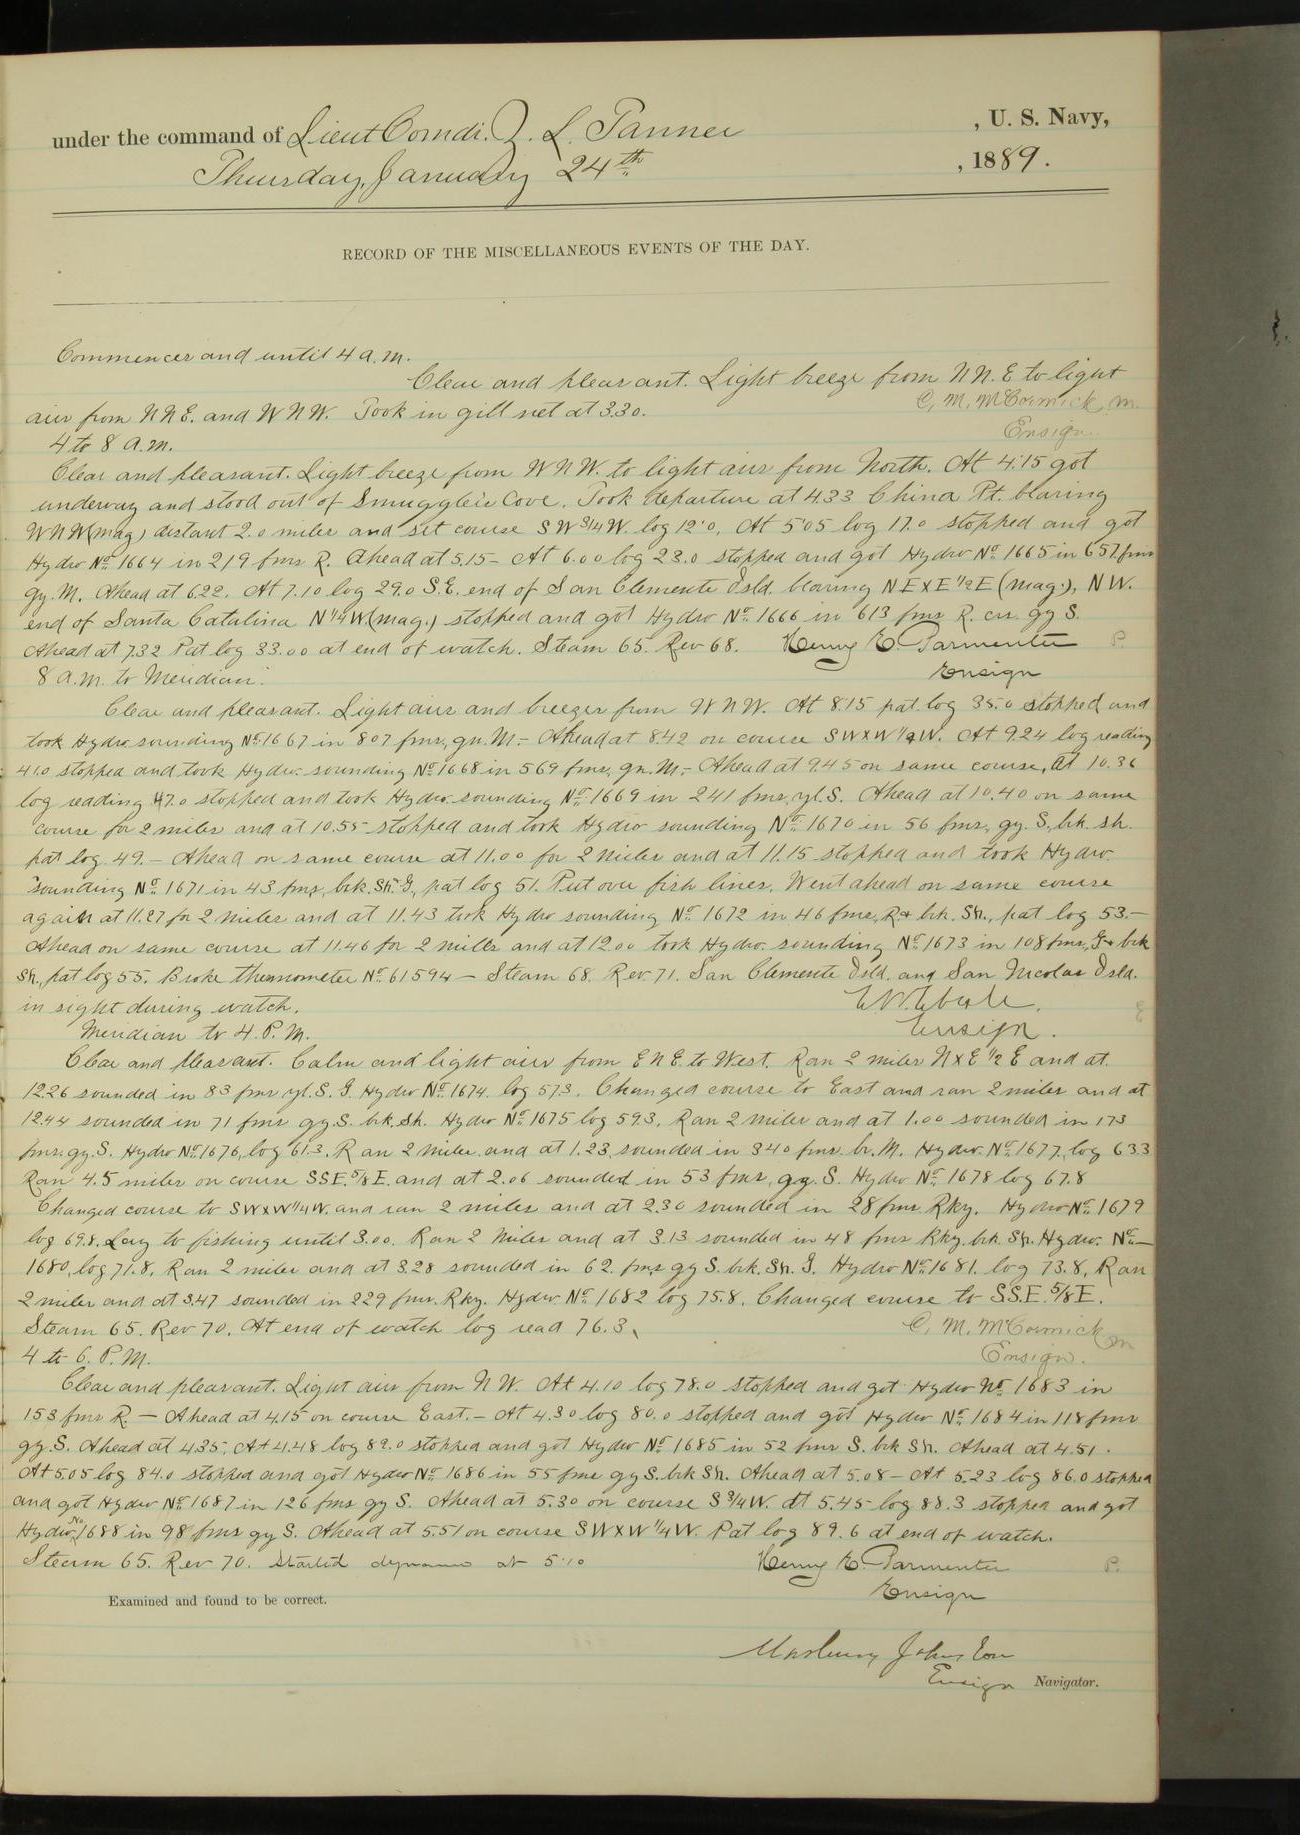 under the command of Lieut Comdr. Z. L. Tanner , U. S. Navy,
Thursday, January 24th , 1889.
RECORD OF THE MISCELLANEOUS EVENTS OF THE DAY.
Commences and until 4 a.m.
Clear and pleasant. Light breeze from N N. E to light
airs from N N E. and W N W. Took in gill net at 3.30.
C. M. McCormick
Ensign
4 to 8 a.m.
Clear and pleasant. Light breeze from W N W. to light airs from North. At 4.15 got
underway and stood out of Smuggler's Cove. Took departure at 4.33 China Pt. bearing
W N W (mag) distant 2.0 miles and set course S W 3/4 W. log 12.0. At 5.05 log 17.0 stopped and got
Hydro No. 1664 in 219 fms R. Ahead at 5.15 - At 6.00 log 23.0 stopped and got Hydro No. 1665 in 657 fms
gy. M. Ahead at 6.22. At 7.10 log 29.0 S.E. end of San Clemente Isld. bearing N E x E 1/2 E (mag.), N W.
end of Santa Catalina N 1/4 W (mag.) stopped and got Hydro No. 1666 in 613 fms R. crs. gy S.
Ahead at 7.32 Pat log 33.00 at end of watch. Steam 65. Rev 68. Henry E. Parmenter P.
Ensign
8 a.m. to Meridian.
Clear and pleasant. Light airs and breezes from W N W. At 8.15 pat. log 35.0 stopped and
took Hydro sounding No. 1667 in 807 fms, gn. M. - Ahead at 8.42 on course SW x W 1/4 W. At 9.24 log reading
41.0 stopped and took Hydro. sounding No. 1668 in 569 fms, gn. M. - Ahead at 9.45 on same course, at 10.36
log reading 47.0 stopped and took Hydro. sounding No. 1669 in 241 fms, yl. S. Ahead at 10.40 on same
course for 2 miles and at 10.55 stopped and took Hydro sounding No. 1670 in 56 fms, gy. S., brk. sh.
pat log. 49. - Ahead on same course at 11.00 for 2 miles and at 11.15 stopped and took Hydro.
sounding No. 1671 in 43 fms, brk. Sh. G., pat log 51. Put over fish lines. Went ahead on same course
again at 11.27 for 2 miles and at 11.43 took Hydro sounding No. 1672 in 46 fms, R. & brk. Sh., pat log 53. -
Ahead on same course at 11.46 for 2 miles and at 12.00 took Hydro. sounding No. 1673 in 108 fms, G & brk
Sh., pat log 55. Broke thermometer No. 61594 - Steam 68. Rev 71. San Clemente Isld. and San Nicolas Isld.
in sight during watch. E. W. Eberle.
Ensign.
Meridian to 4. P. M.
Clear and pleasant. Calm and light airs from E N E. to West. Ran 2 miles N x E 1/2 E and at
12.26 sounded in 83 fms yl. S. G. Hydro No. 1674. log 57.3. Changed course to East and ran 2 miles and at
12.44 sounded in 71 fms gy S. brk. Sh. Hydro No. 1675 log 59.3. Ran 2 miles and at 1.00 sounded in 173
fms. gy. S. Hydro No. 1676, log 61.3. Ran 2 miles and at 1.23 sounded in 340 fms br. M. Hydro. No. 1677, log 63.3
Ran 4.5 miles on course SSE 5/8 E. and at 2.06 sounded in 53 fms, gy. S. Hydro No. 1678 log 67.8
Changed course to SW x W 1/4 W. and ran 2 miles and at 2.30 sounded in 28 fms Rky. Hydro No. 1679
log 69.8. Lay to fishing until 3.00. Ran 2 miles and at 3.13 sounded in 48 fms Rky. brk Sh. Hydro. No. -
1680, log 71.8. Ran 2 miles and at 3.28 sounded in 62. fms gy S. brk. Sh. G. Hydro No. 1681. log 73.8. Ran
2 miles and at 3.47 sounded in 229 fms. Rky. Hydro No. 1682 log 75.8. Changed course to S.S.E. 5/8 E.
Steam 65. Rev 70. At end of watch log read 76.3. C. M. McCormick
Ensign.
4 to 6. P. M.
Clear and pleasant. Light airs from N W. At 4.10 log 78.0 stopped and got Hydro No. 1683 in
153 fms R. - Ahead at 4.15 on course East. - At 4.30 log 80.0 stopped and got Hydro No. 1684 in 118 fms
gy. S. Ahead at 4.35. At 4.48 log 82.0 stopped and got Hydro No. 1685 in 52 fms S. brk Sh. Ahead at 4.51.
At 5.05 log 84.0 stopped and got Hydro No. 1686 in 55 fms gy S. brk Sh. Ahead at 5.08 - At 5.23 log 86.0 stopped
and got Hydro No. 1687 in 126 fms gy S. Ahead at 5.30 on course S 3/4 W. At 5.45 log 88.3 stopped and got
Hydro. No 1688 in 98 fms gy S. Ahead at 5.51 on course SW x W 1/4 W. Pat log 89.6 at end of watch.
Steam 65. Rev 70. Started dynamo at 5:10 Henry E. Parmenter P.
Ensign
Examined and found to be correct.
Marbury Johnston
Ensign Navigator.